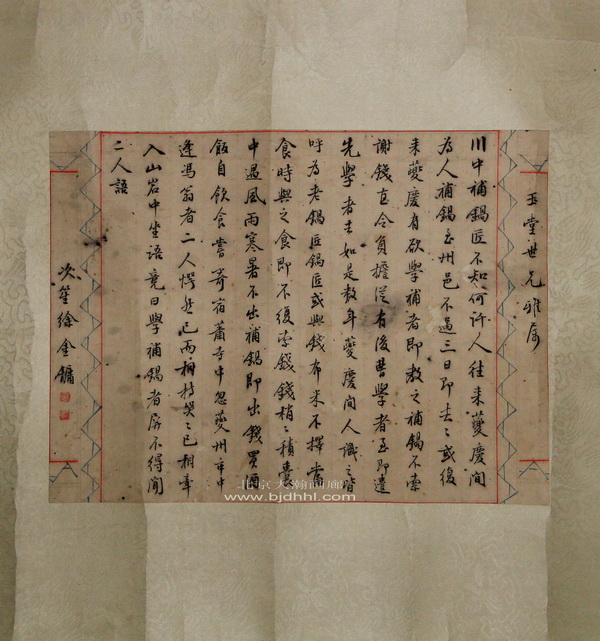 玉堂世兄雅属
川中補鍋匠不知何許人往来夔慶間
為人補鍋至州邑不過三日即去去或復
来夔慶有欲學補者即教之補鍋不索
謝錢直令負擔從有後曹學者至即遣
先學者去如是数年夔慶間人識之皆
呼為老鍋匠鍋匠或與錢布米不擇當
食時與之食即不復索錢錢梢梢積囊
中遇風雨寒暑不出補鍋即出錢買酒
飯自飲食嘗寄宿蕭寺中忽夔州市中
逢馮翁者二人愕然已而相持哭哭已相率
入山岩中坐語竟日學補鍋者屏不得聞
二人語
次笙徐金鏞
www.bjdhhl.com